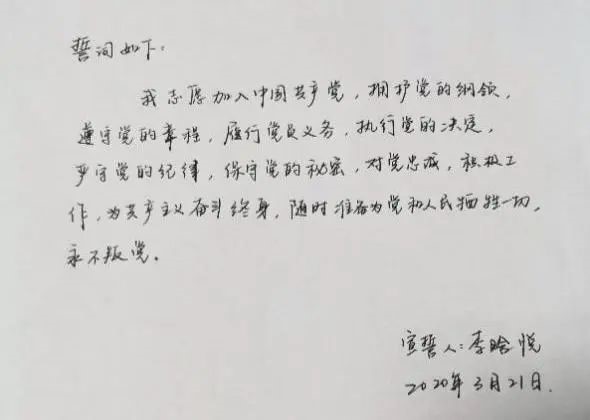 誓词如下:
我志愿加入中国共产党，拥护党的纲领，
遵守党的章程，履行党员义务，执行党的决定，
严守党的纪律，保守党的秘密，对党忠诚，积极工
作，为共产主义奋斗终身，随时准备为党和人民牺牲一切，
永不叛党。
宣誓人:李晗悦
2020年3月21日.